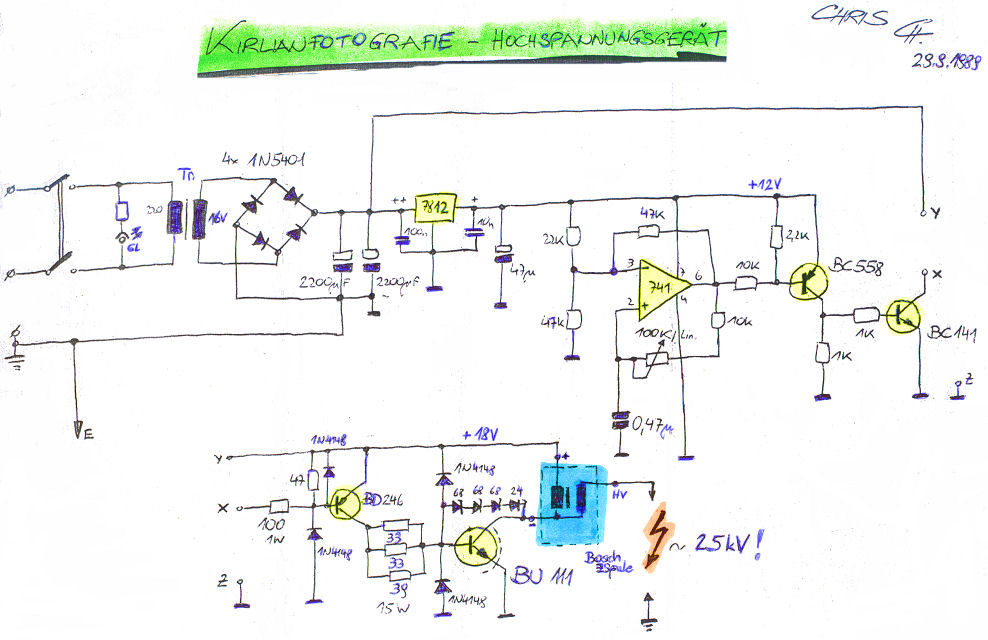 KIRLIANFOTOGRAFIE - HOCHSPANNUNGSGERÄT
CHRIS
29.9.1989
4x 1N5401
Tr1
16V
GL
2200µF
2200µF
++
100n
7812
+
10n
47µ
22K
47K
47K
3
2
741
7
6
4
+
100K/Lin.
10K
10K
0,47µ
+12V
2,2K
BC558
1K
1K
BC141
Y
X
Z
E
Y
X
Z
1N4148
47
100
1W
1N4148
BD246
33
33
39
15W
+18V
1N4148
68
68
68
24
BU 111
1N4148
+
HV
Bosch
ZSpule
~ 25kV!